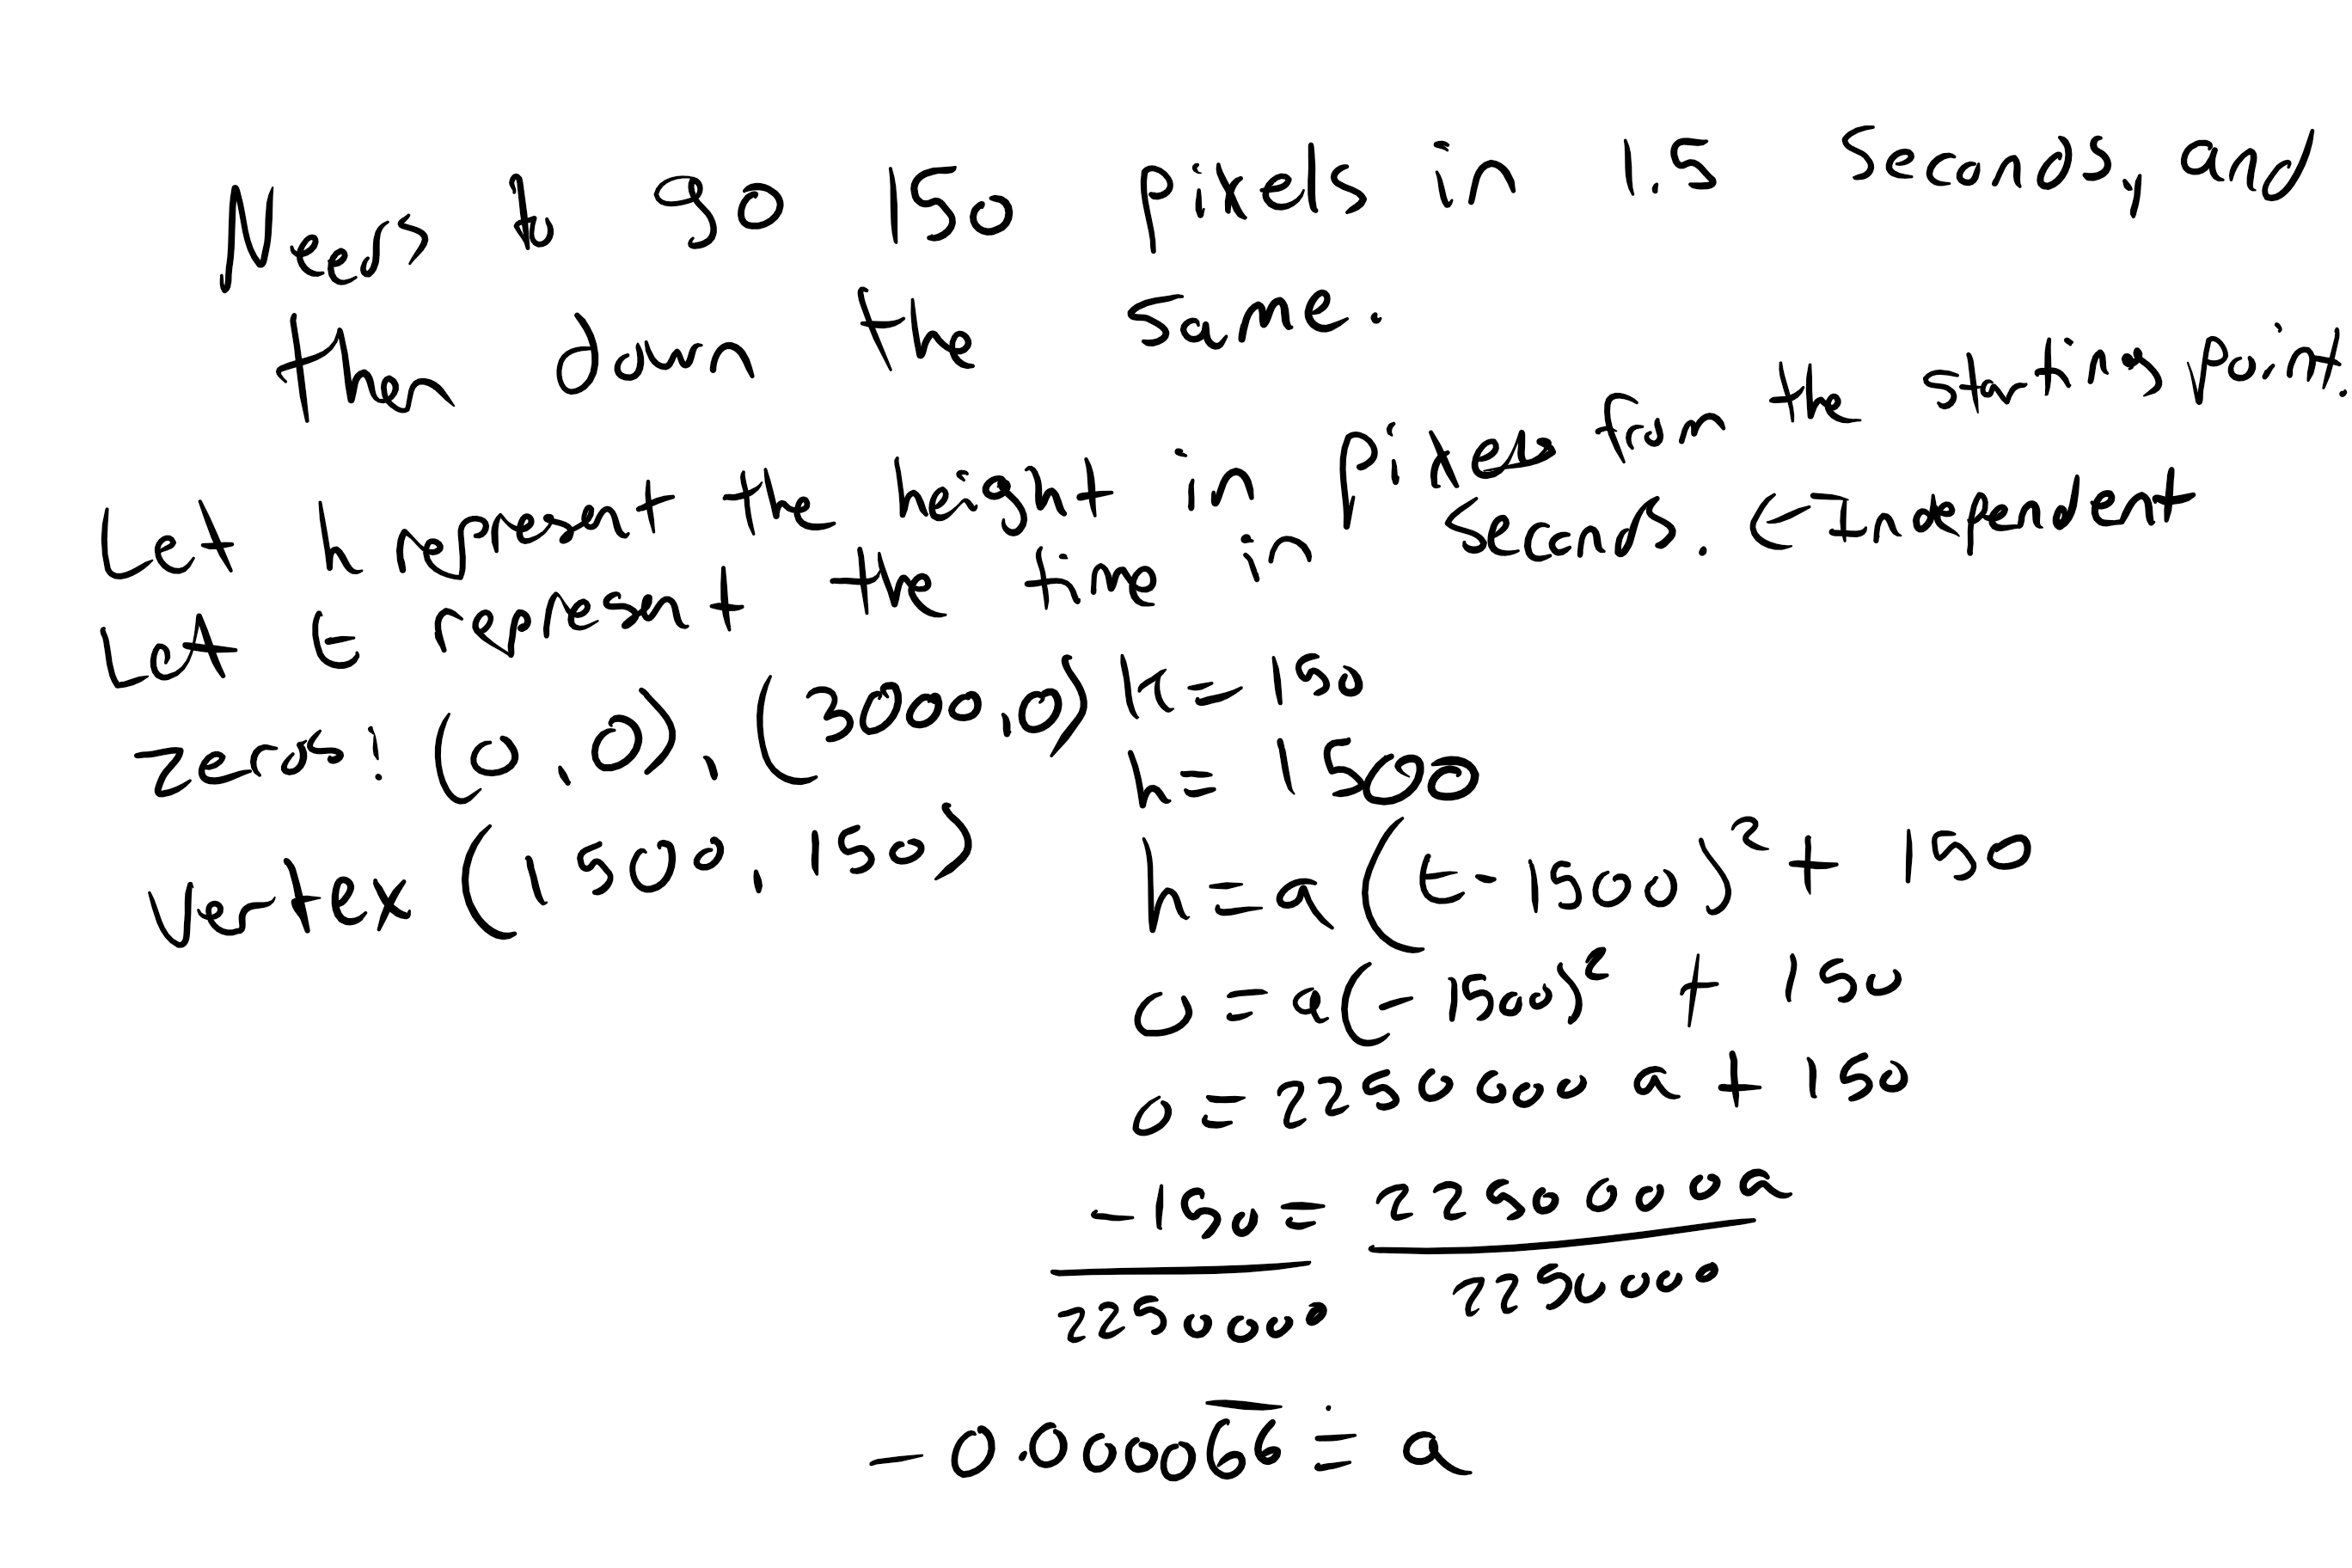 Needs to go 150 pixels in 1.5 seconds, and
then down the same.
Let h represent the height in pixels from the starting point.
Let t represent the time in seconds. ← Independent
Zeros: (0,0), (3000,0)
Vertex (1500,150)
k = 150
h = 1500
h = a(t - 1500)² + 150
0 = a(-1500)² + 150
0 = 2250000a + 150
-150 = 2250000a
2250000 2250000
-0.00006̅6̅ ≐ a